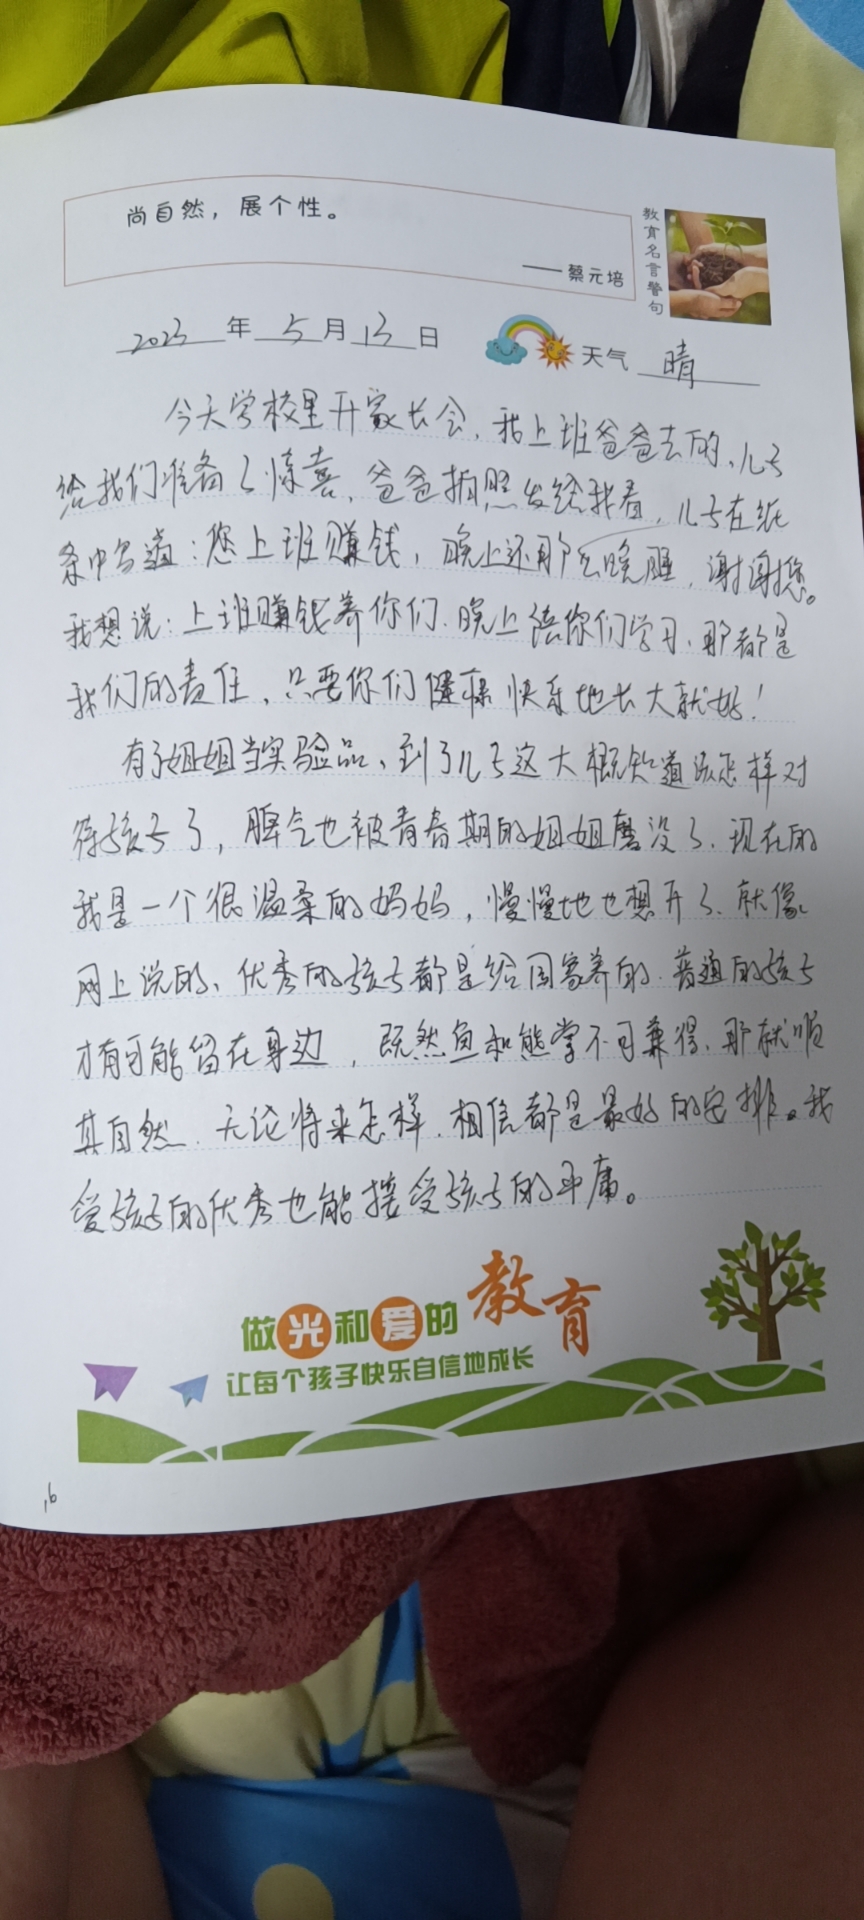 尚自然，展个性。
——蔡元培
教育名言警句
2023年5月13日 天气 晴
今天学校里开家长会，我上班爸爸去的、儿子
给我们准备了惊喜，爸爸拍照发给我看，儿子在纸
条中写道：您上班赚钱，晚上还那么晚睡，谢谢您。
我想说：上班赚钱养你们、晚上陪你们学习、那都是
我们的责任、只要你们健康快乐地长大就好！
有了姐姐当实验品、到了儿子这大概知道该怎样对
待孩子了，脾气也被青春期的姐姐磨没了、现在的
我是一个很温柔的妈妈，慢慢地也想开了、就像
网上说的、优秀的孩子都是给国家养的、普通的孩子
才有可能留在身边，既然鱼和熊掌不可兼得、那就顺
其自然、无论将来怎样、相信都是最好的安排。我
受孩子的优秀也能接受孩子的平庸。
做光和爱的教育
让每个孩子快乐自信地成长
16